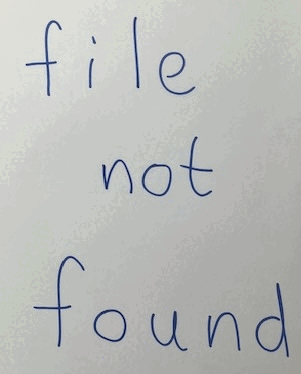 file
not
found